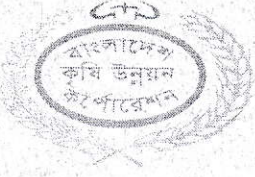 বাংলাদেশ
কৃষি উন্নয়ন
কর্পোরেশন